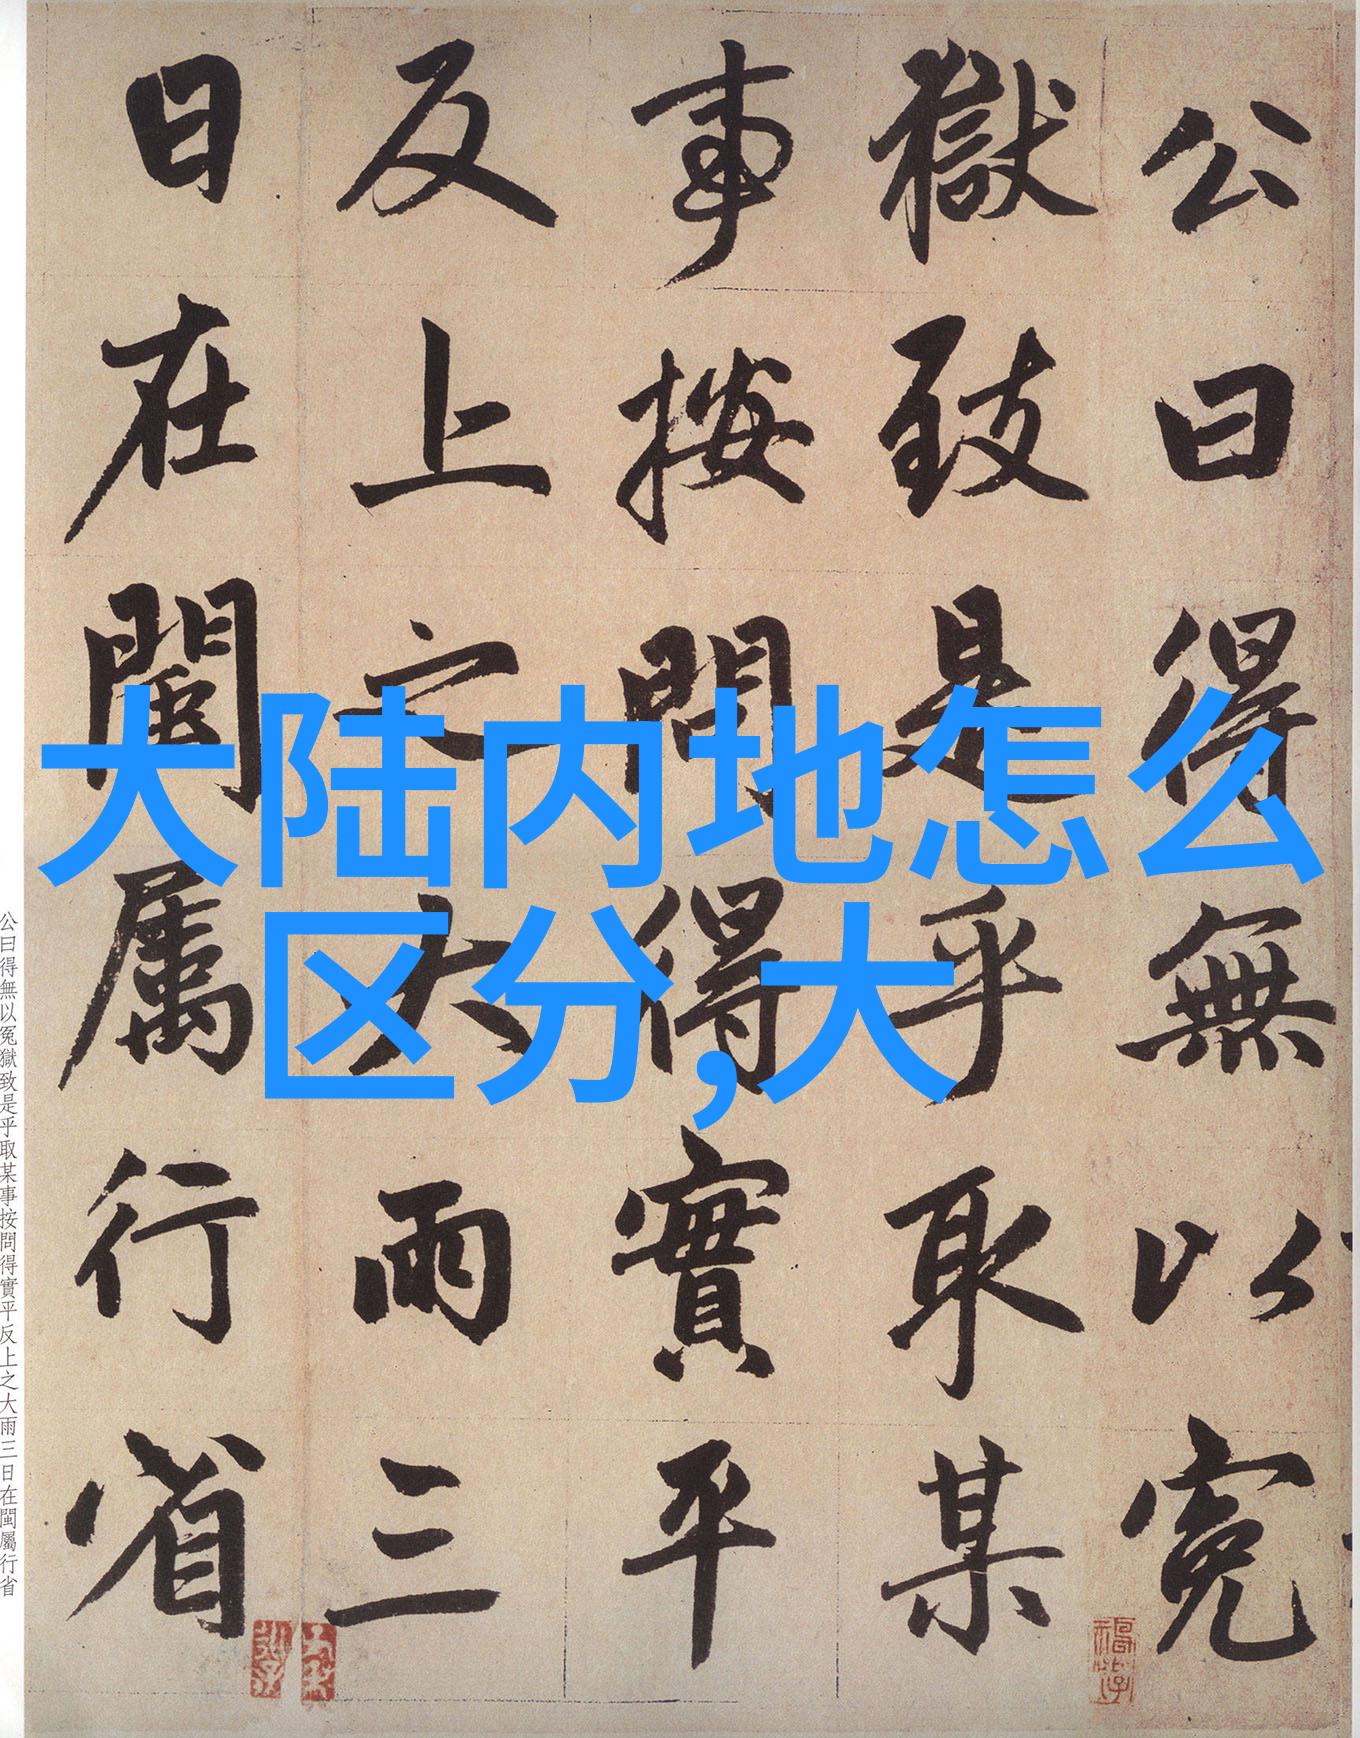 公曰得無以冤
獄致是乎取某
事按問得實平
反上之大雨三
日在閩屬行省
大陆内地怎么
区分,大
公曰得無以冤獄致是乎取某事按問得實平反上之大雨三日在閩屬行省